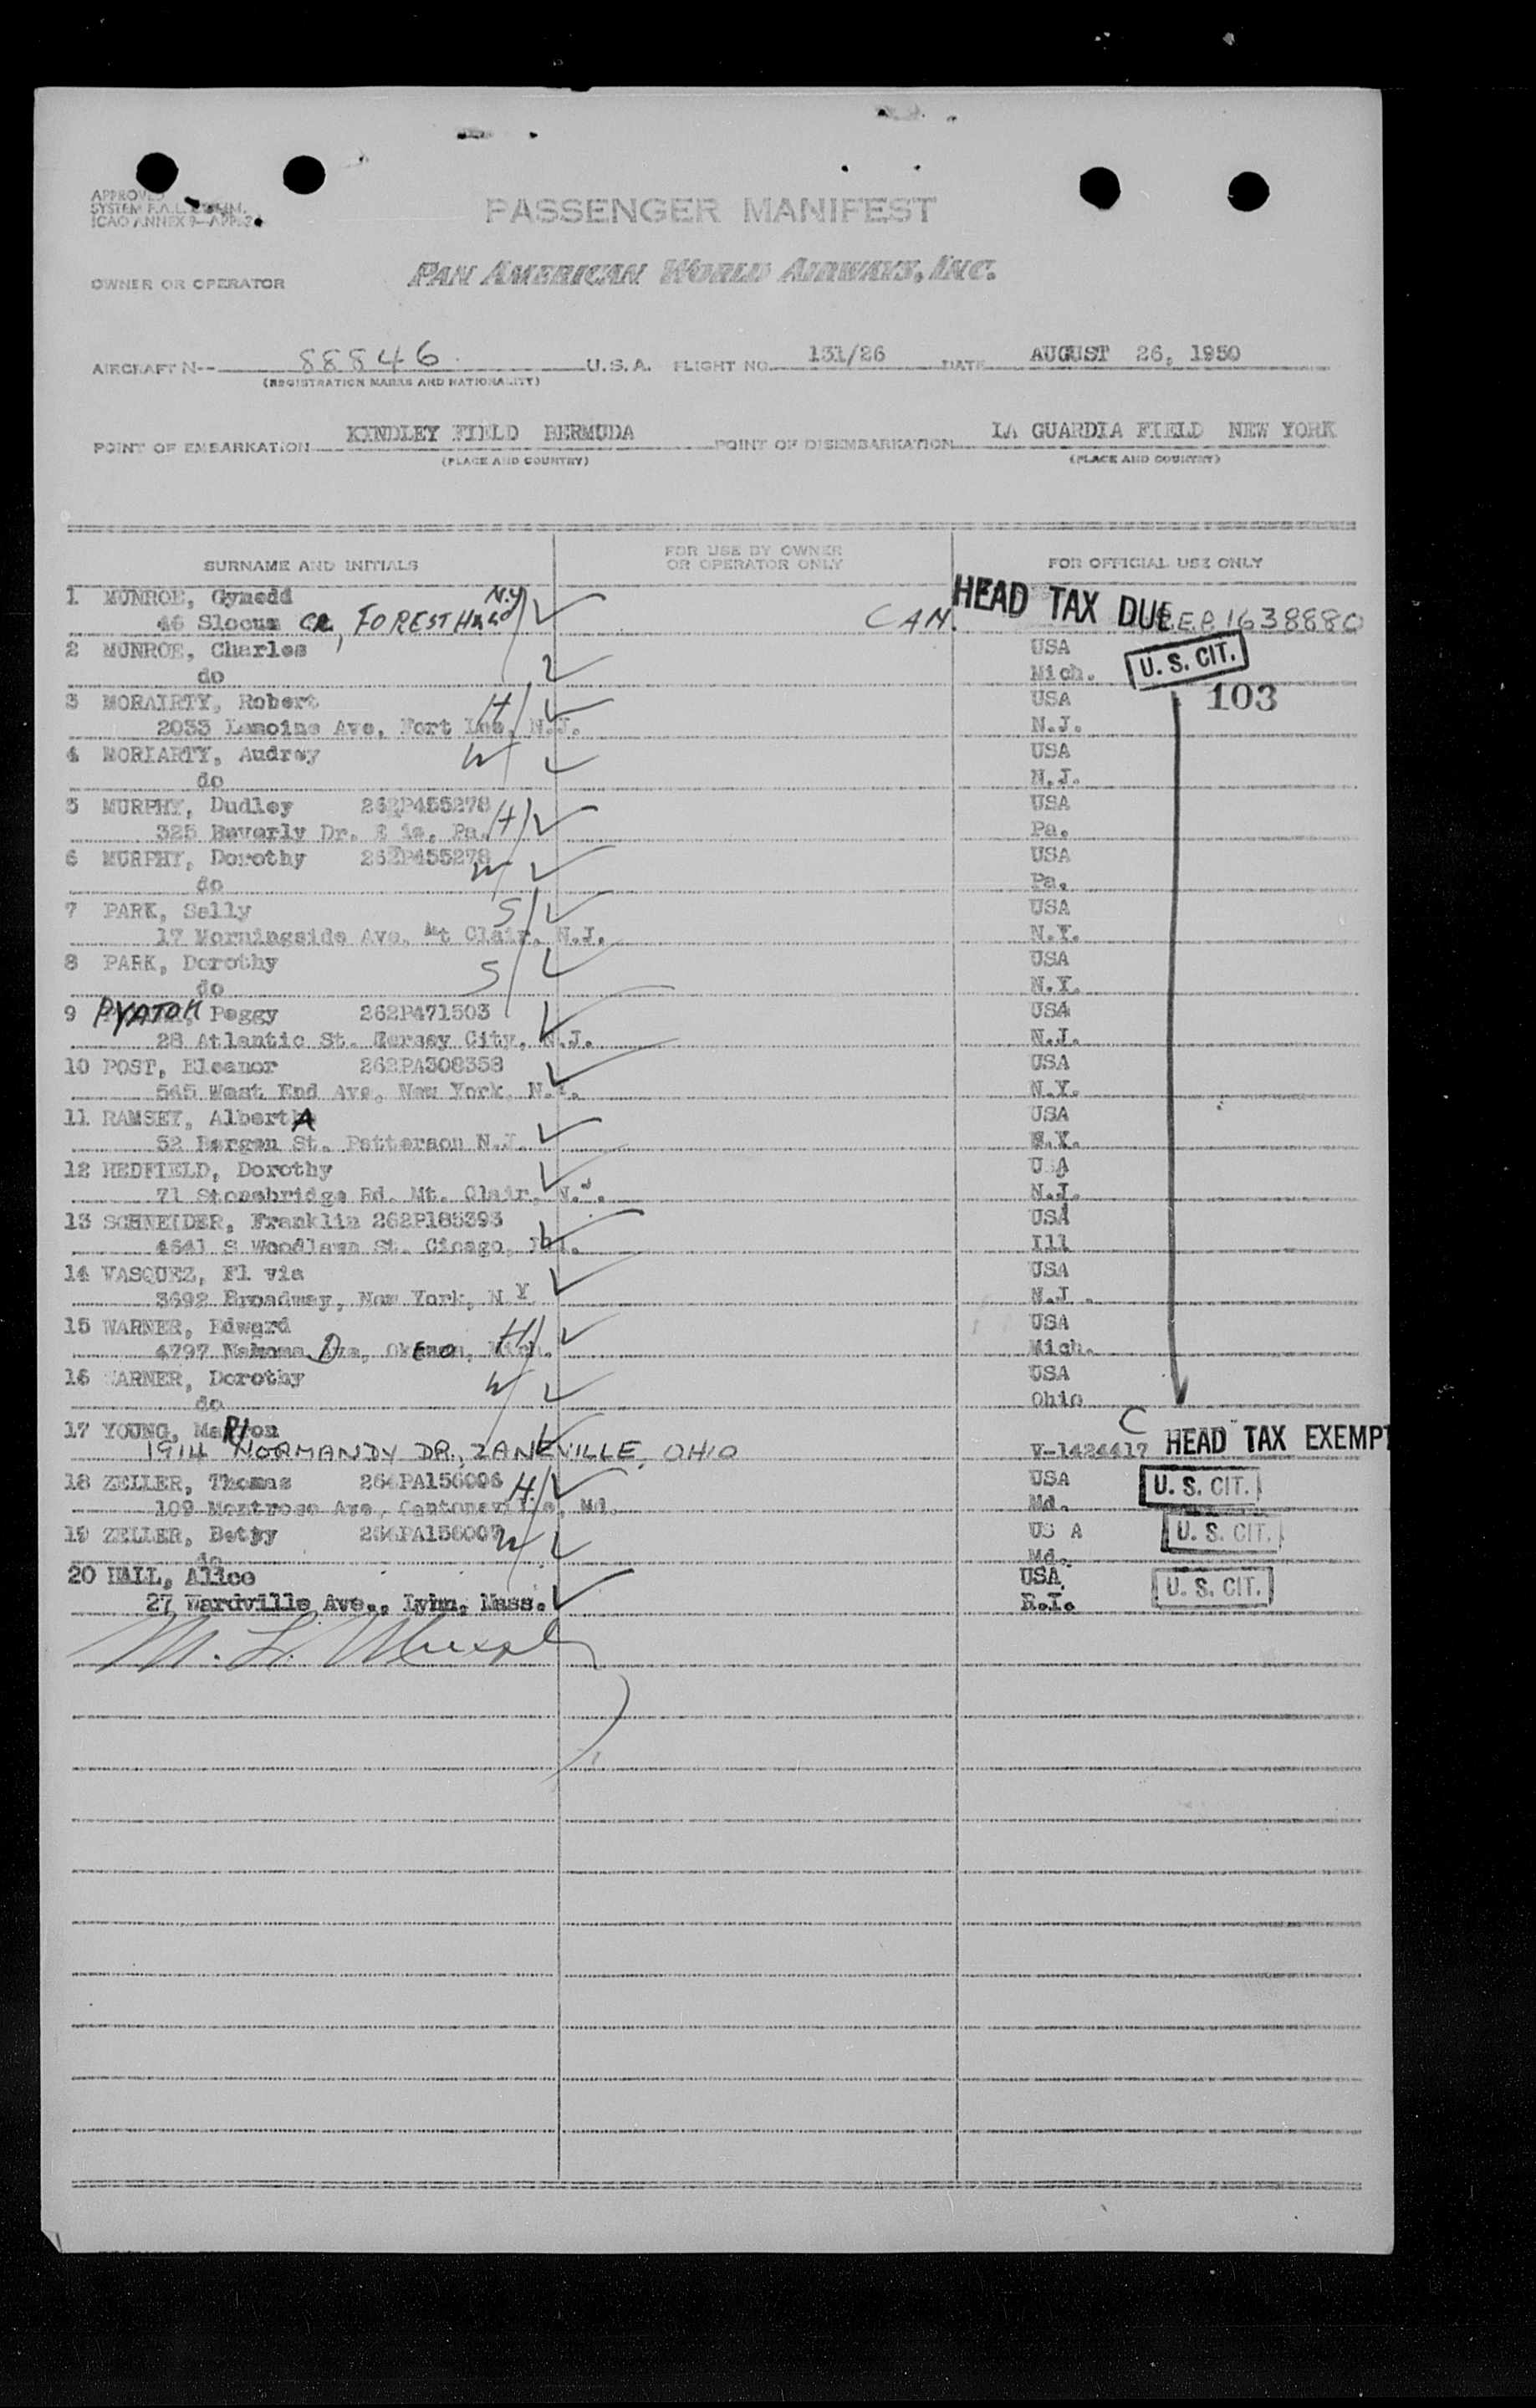 APPROVED
SYSTEM F.A.L. COMM.
ICAO ANNEX 9—APP. 2
PASSENGER MANIFEST
OWNER OR OPERATOR PAN AMERICAN WORLD AIRWAYS, INC.
AIRCRAFT N-- 88846 U.S.A. FLIGHT NO. 131/26 DATE AUGUST 26, 1950
(REGISTRATION MARKS AND NATIONALITY)
POINT OF EMBARKATION KINDLEY FIELD BERMUDA POINT OF DISEMBARKATION LA GUARDIA FIELD NEW YORK
(PLACE AND COUNTRY) (PLACE AND COUNTRY)
SURNAME AND INITIALS FOR USE BY OWNER OR OPERATOR ONLY FOR OFFICIAL USE ONLY
1 MUNROE, Gymedd N.Y HEAD TAX DUE
46 Slocum CR, FOREST HILLS CAN. 1638880
2 MUNROE, Charles USA
do Mich. U. S. CIT.
3 MORAIRTY, Robert H USA 103
2033 Lemoine Ave, Fort Lee, N.J. N.J.
4 MORIARTY, Audrey W USA
do N.J.
5 MURPHY, Dudley 262P455278 USA
325 Beverly Dr. E ie, Pa. H Pa.
6 MURPHY, Dorothy 262P455279 USA
do W Pa.
7 PARK, Sally S USA
17 Morningside Ave, Mt Clair, N.J. N.Y.
8 PARK, Dorothy USA
do S N.Y.
9 PYATOK, Peggy 262P471503 USA
28 Atlantic St. Jersey City, N.J. N.J.
10 POST, Eleanor 262PA308358 USA
545 West End Ave, New York, N.Y. N.Y.
11 RAMSEY, AlbertA USA
52 Bergen St. Patterson N.J. N.Y.
12 REDFIELD, Dorothy USA
71 Stonebridge Rd. Mt. Clair, N.J. N.J.
13 SCHNEIDER, Franklin 262P185393 USA
4641 S Woodlawn St. Cicago, Ill. Ill
14 VASQUEZ, Fl via USA
3692 Broadway, New York, N Y N.J.
15 WARNER, Edward H USA
4797 Nakoma Dr, Okemo, Mich. Mich.
16 WARNER, Dorothy W USA
do Ohio
17 YOUNG, Marion C
1914 NORMANDY DR., ZANEVILLE, OHIO V-1424417 HEAD TAX EXEMPT
18 ZELLER, Thomas 264PA156006 H. USA U. S. CIT.
109 Montrose Ave, Cantonsville, Md. Md.
19 ZELLER, Betty 264PA156007 W US A U. S. CIT.
do Md.
20 HALL, Alice USA U. S. CIT.
27 Wardville Ave., Lyhn, Mass. R.I.